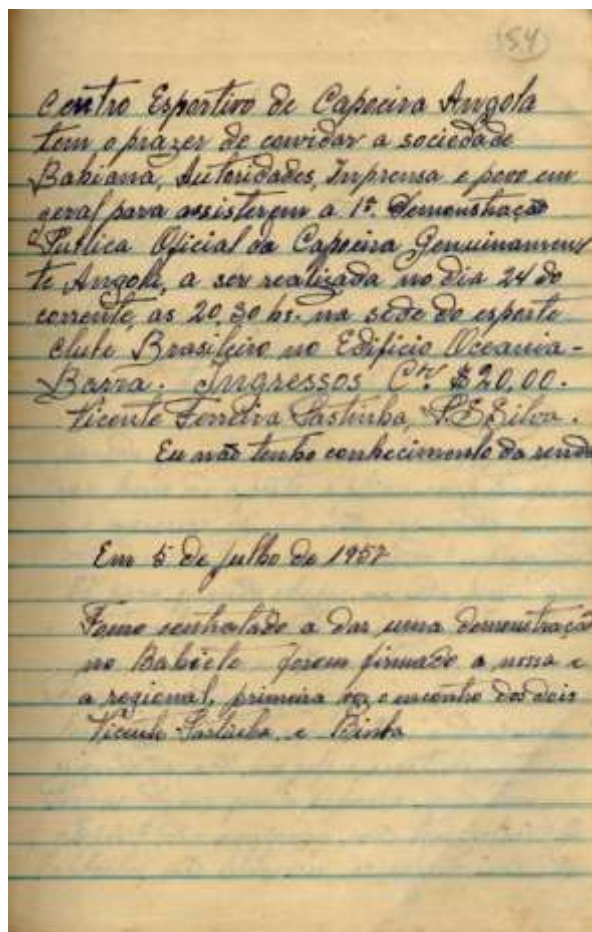 54
Centro Esportivo de Capoeira Angola
tem o prazer de convidar a sociedade
Bahiana, Autoridades, Inprensa e povo em
geral para assisterem a 1ª Demonstração
Publica Oficial da Capoeira Genuinamen
te Angola, a ser realizada no dia 24 do
corrente, as 20,30 hs. na séde do esporte
clube Brasileiro no Edificio Oceania-
Barra. Ingressos Cr. $20,00.
Vicente Ferreira Pastinha, Silva.
Eu não tenho conhecimento da renda
Em 5 de julho de 1957
Fomo contratado a dar uma demonstração
no forem firmado a nossa e
a regional, primeira vez o encontro dos dois
Vicente Pastinha, e Bimba